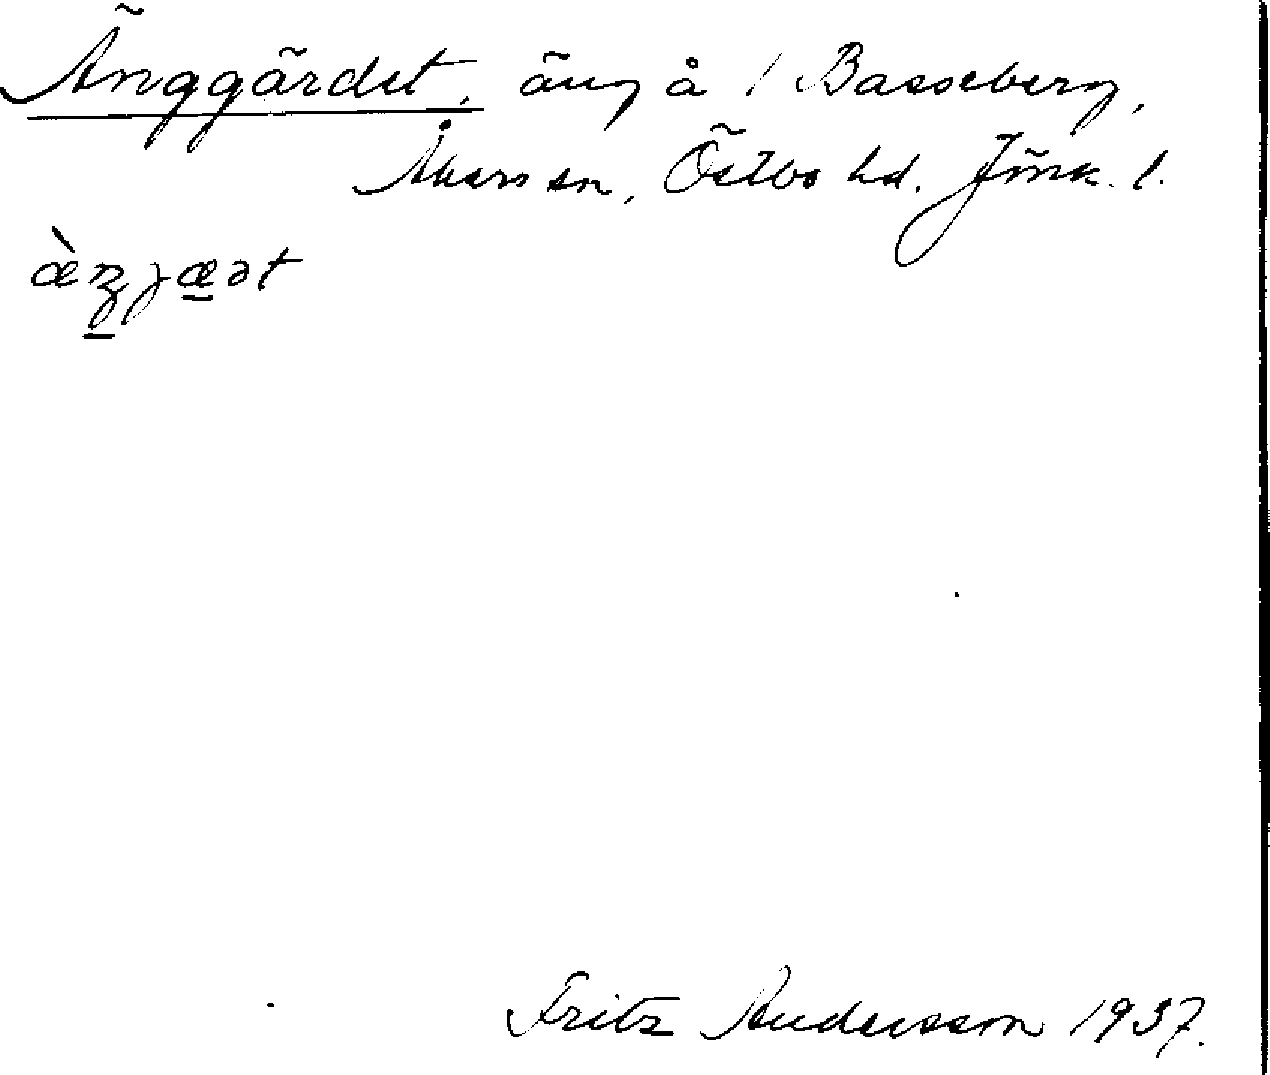 Änggärdet, äng å 1 Basseberg,
Åkers sn, Östbo hd. Jönk. l.
Fritz Andersson 1937.